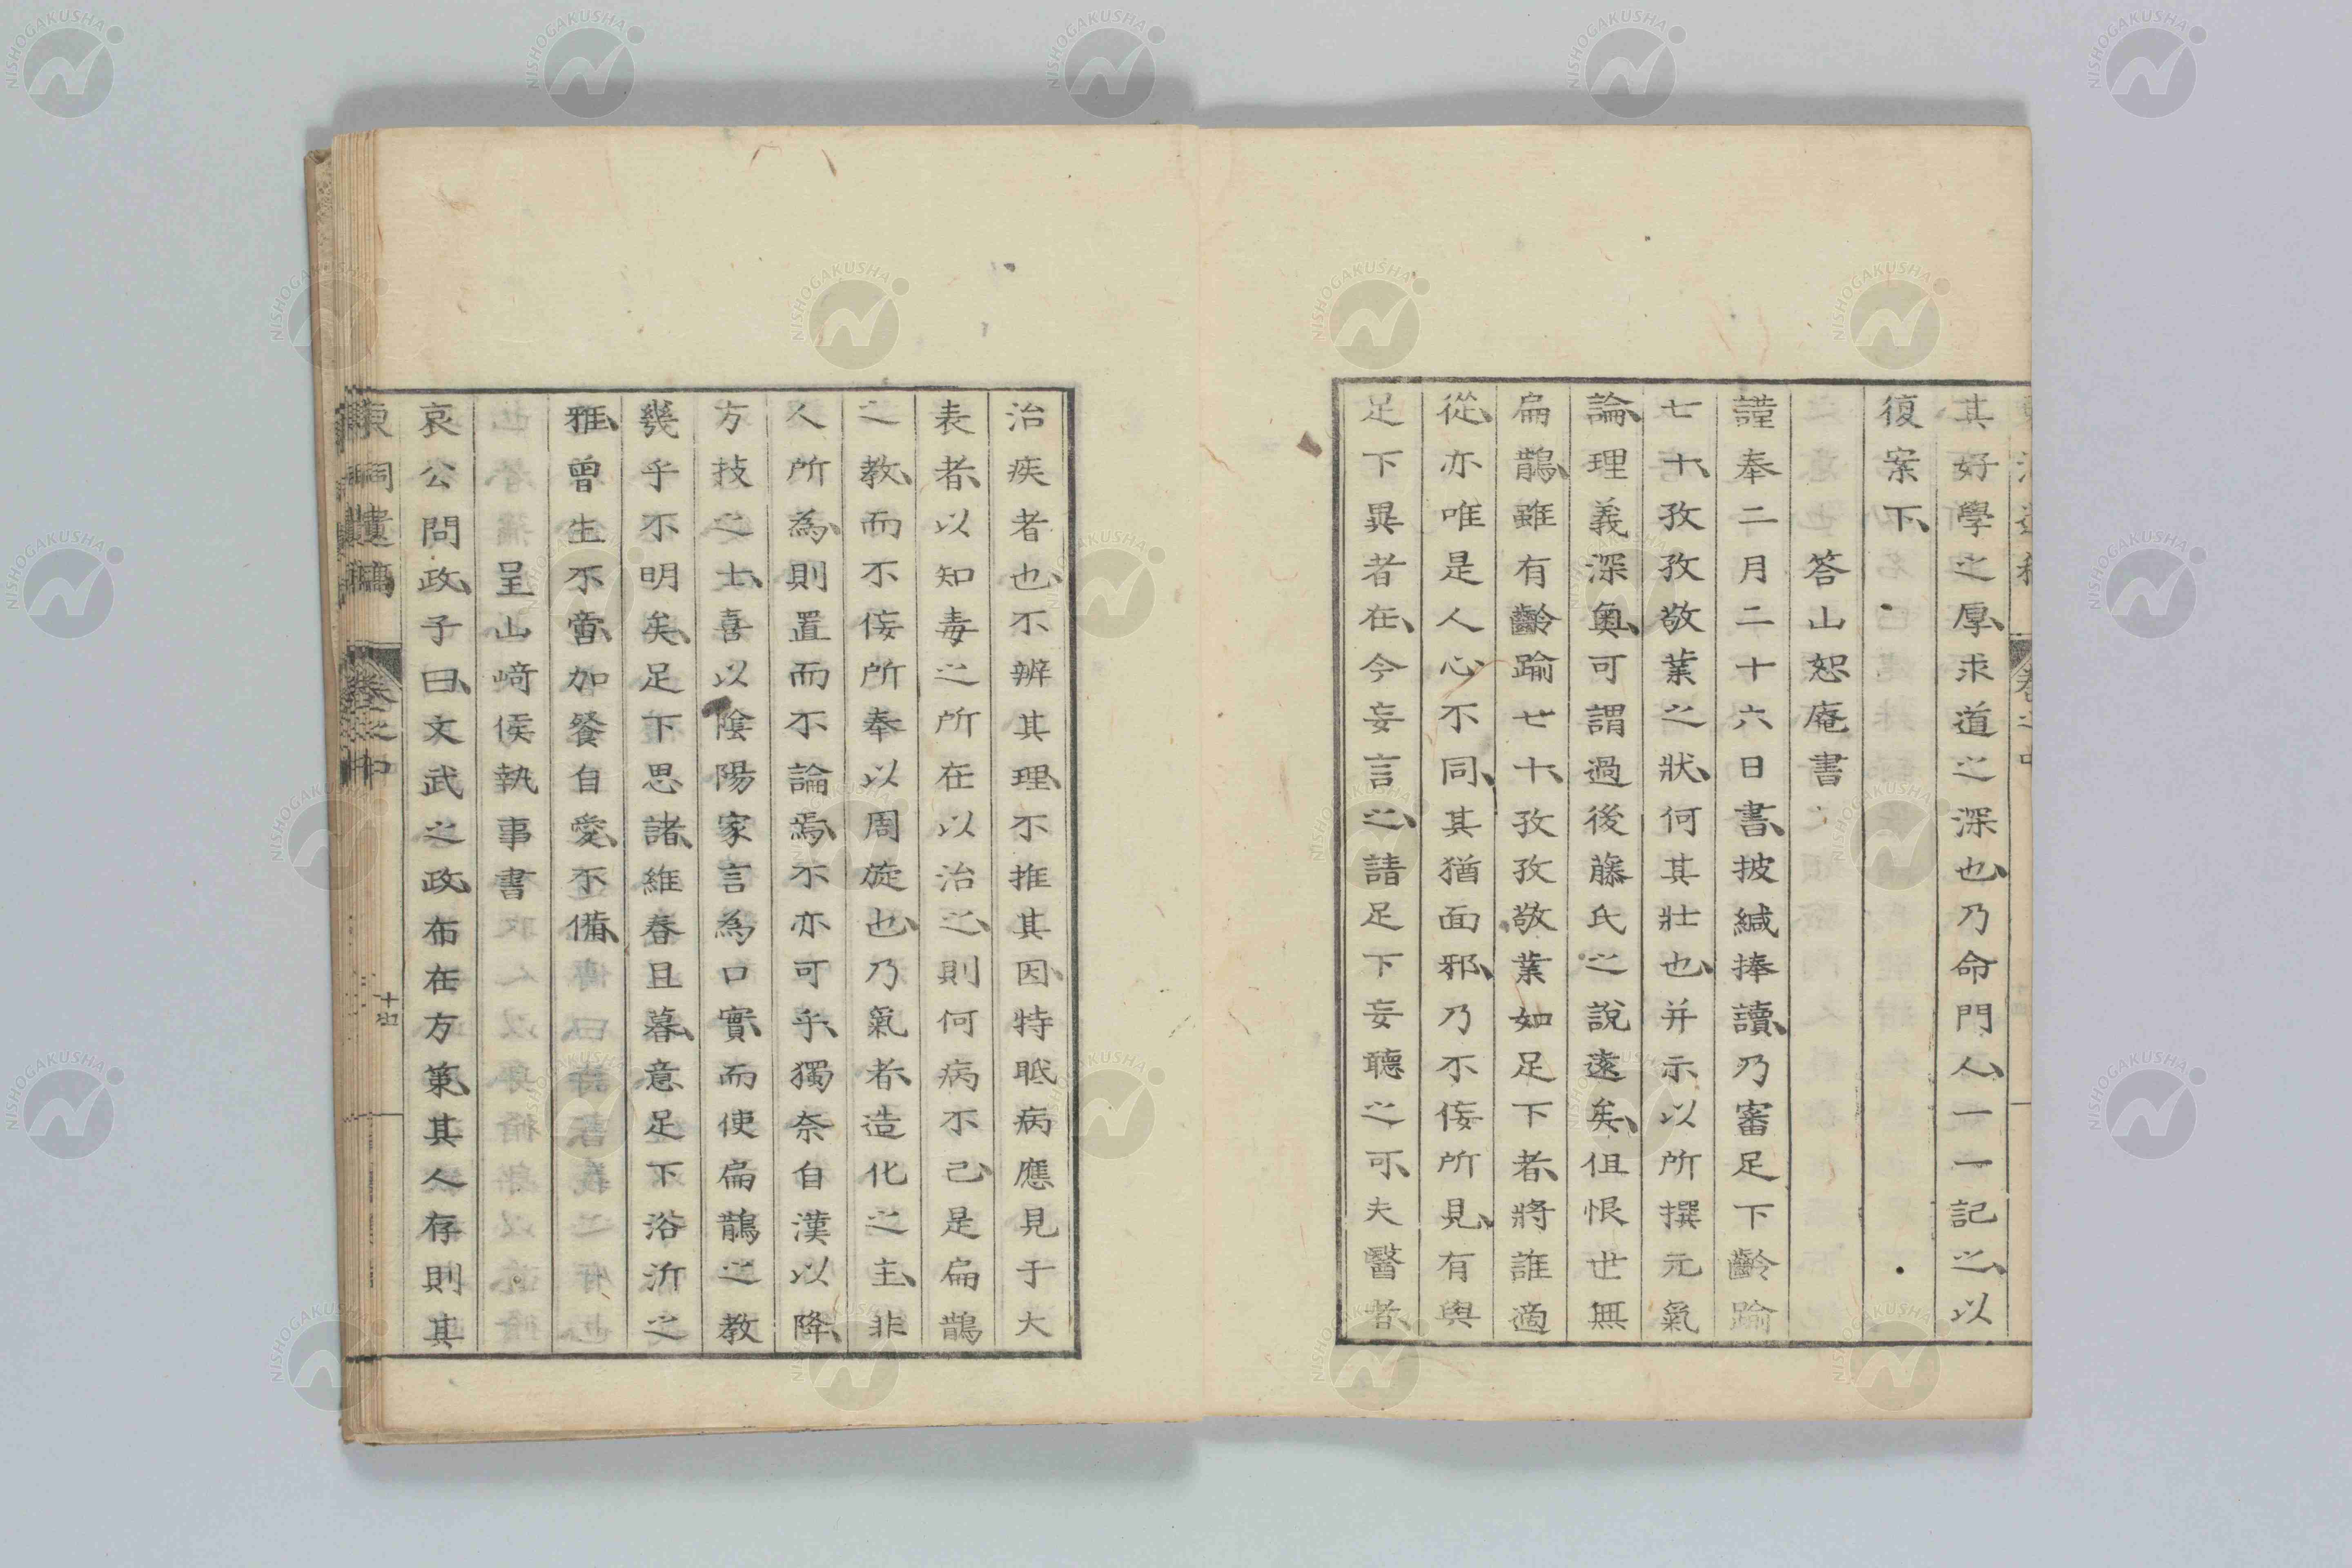 其好學之厚、求道之深也、乃命門人、一一記之、以
復案下、
答山恕庵書
謹奉二月二十六日書、披緘捧讀、乃審足下齡踰
七十、孜孜敬業之狀、何其壯也、并示以所撰元氣
論、理義深奧、可謂過後藤氏之說遠矣、但恨世無
扁鵲、雖有齡踰七十、孜孜敬業如足下者、將誰適
從、亦唯是人心不同、其猶面邪、乃不佞所見、有與
足下異者在、今妄言之、請足下妄聽之可、夫醫者、
治疾者也、不辨其理、不推其因、特眡病應見于大
表者、以知毒之所在以治之、則何病不已、是扁鵲
之教、而不佞所奉以周旋也、乃氣者、造化之主、非
人所為、則置而不論焉、不亦可乎、獨奈自漢以降、
方技之士、喜以陰陽家言為口實、而使扁鵲之教
幾乎不明矣、足下思諸、維春且暮、意足下浴沂之
雅、曾生不啻、加餐自愛、不備、
呈山崎侯執事書
哀公問政、子曰、文武之政、布在方策、其人存則其
東洞遺稿 卷之中 十五
NISHOGAKUSHA